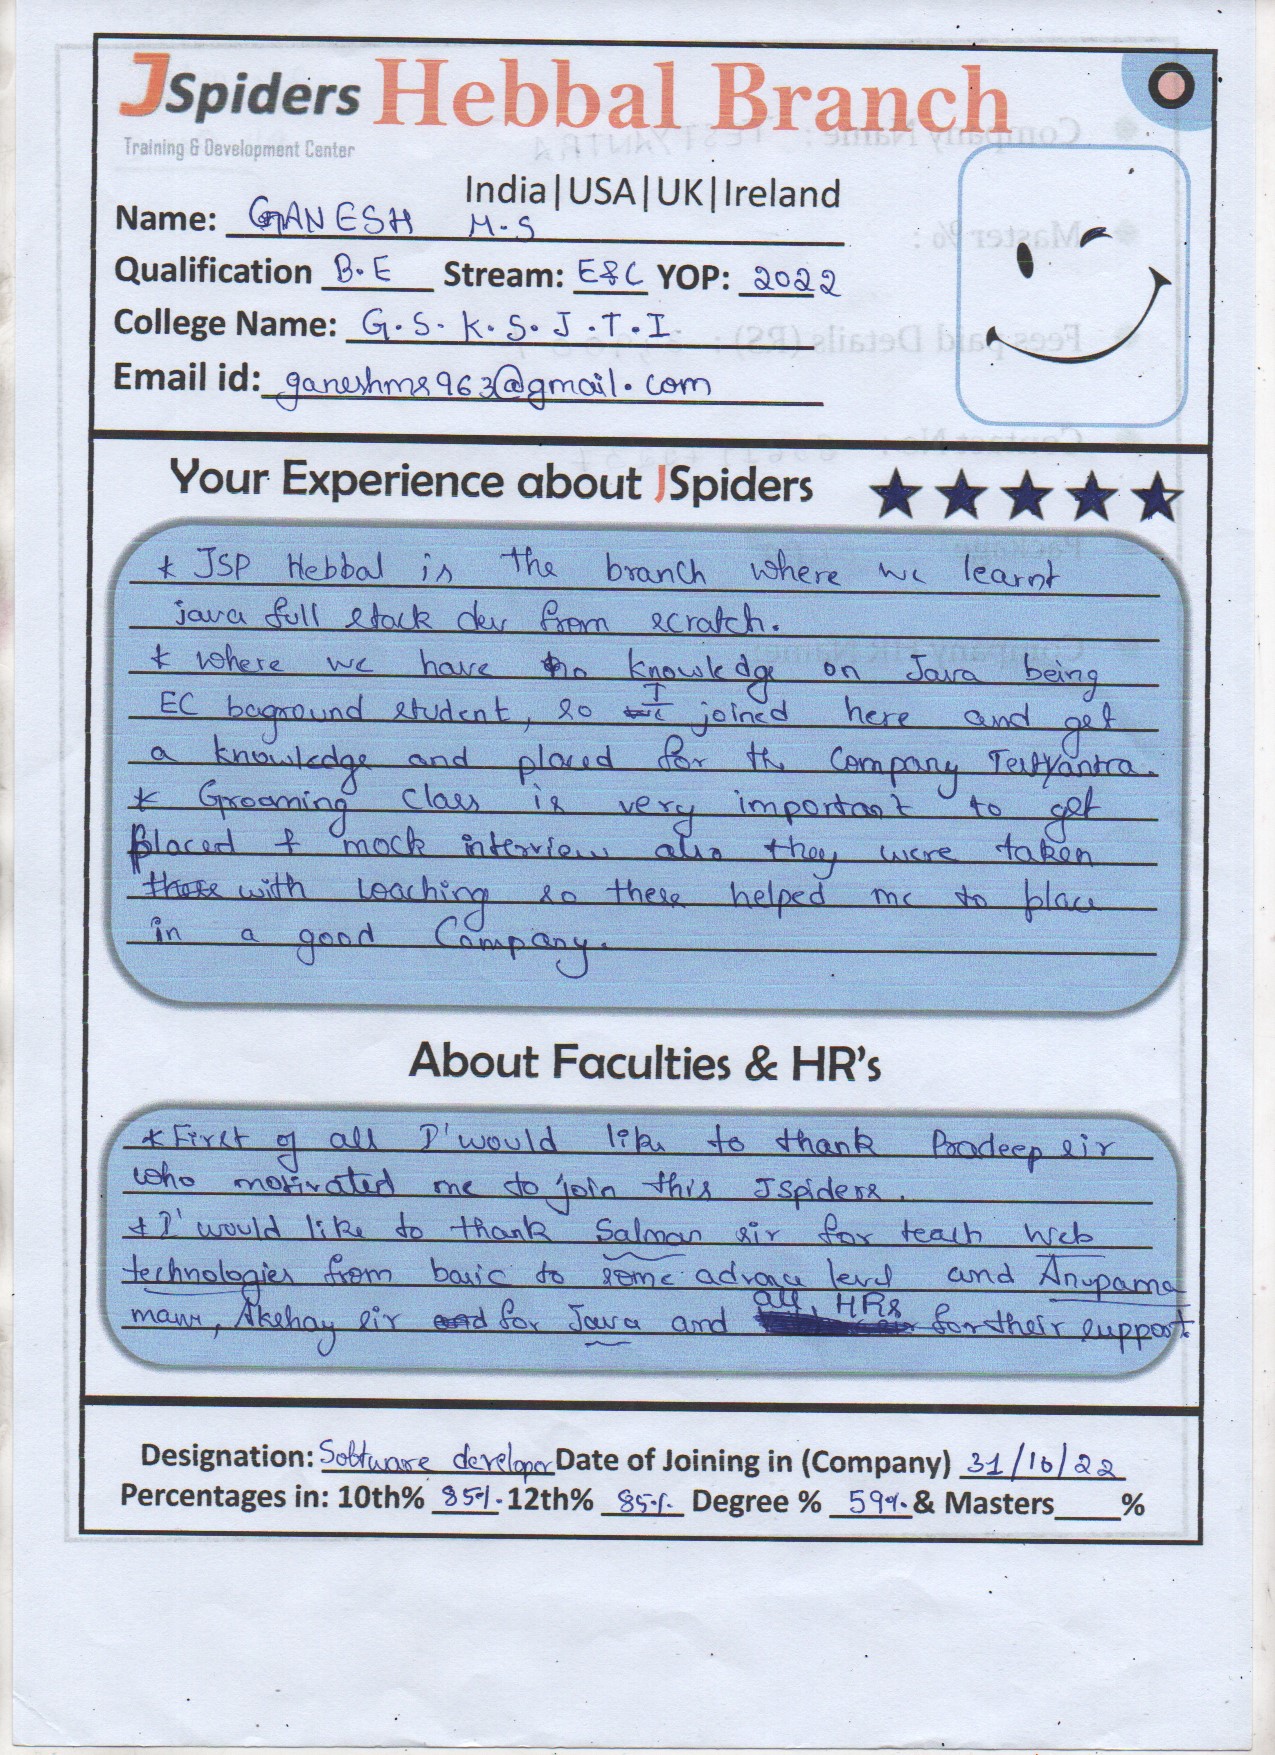 JSpiders Hebbal Branch
Training & Development Center
India|USA|UK|Ireland
Name: GANESH M.S
Qualification B.E Stream: E&C YOP: 2022
College Name: G.S.K.S.J.T.I
Email id: ganeshms963@gmail.com
Your Experience about JSpiders
* JSP Hebbal is the branch where we learnt
java full stack dev from scratch.
* where we have no knowledge on Java being
EC baground student, so I joined here and get
a knowledge and placed for the Company TestYantra.
* Grooming class is very important to get
placed & mock interview also they were taken
with coaching so these helped me to place
in a good Company.
About Faculties & HR's
* First of all I'would like to thank Pradeep sir
who motivated me to join this JSpiders.
* I'would like to thank Salman sir for teach Web
technologies from basic to some advance level and Anupama
mam, Akshay sir for Java and all HRs for their support
Designation: Software developer Date of Joining in (Company) 31/10/22
Percentages in: 10th% 85%. 12th% 85%. Degree % 59%. & Masters____%